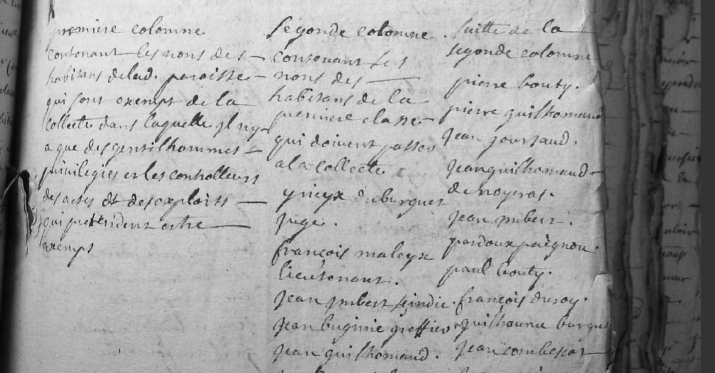 première colomne
contenant les nons des
habitans delad. paroisse
qui sont exempts de la
collecte dans laquelle il ny
a que des gentilhommes
privilegies et les controlleurs
des actes et des exploits
qui pretendent estre
exempts
segonde colomne
contenant les
nons des
habitans de la
premiere classe
qui doivent passer
a la collecte
yrieyx duburguet
juge.
françois maleyx
lieutenant.
jean jmbert sindic
jean buginie greffier
jean guilhomaud.
suitte de la
segonde colomne
pierre bouty.
pierre guilhomaud
jean goursaud.
jean guilhomaud
de noyeras.
jean jmbert.
pardoux paignon.
paul bouty.
françois duroy.
guilhaume burgue
jean combescot